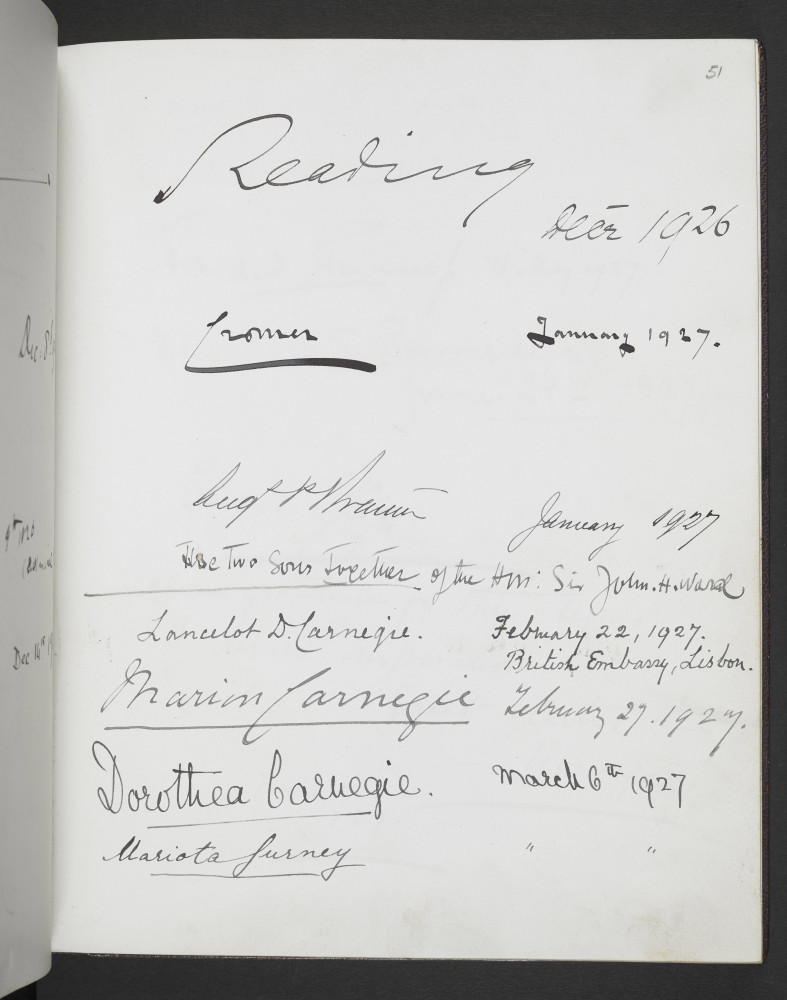 51
Reading
Decr 1926
Cromer January 1927.
January 1927
The Two Sons Together of the Hon: Sir John. H. Ward
Lancelot D. Carnegie. February 22, 1927.
British Embassy, Lisbon.
Marion Carnegie February 27. 1927.
Dorothea Carnegie. March 6th 1927
Mariota Gurney " "
Dec.
Dec 14th